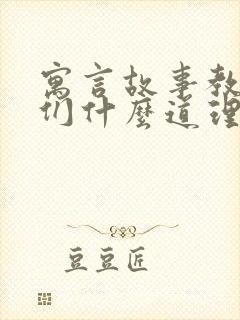 寓言故事教
们什麽道理
豆豆匠